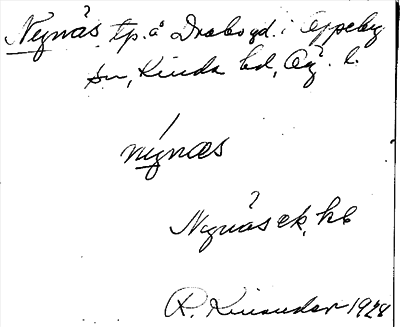 Nynäs tp. å Drabo gd. i Oppeby
sn, Kinda hd, Ög. l.
nýnæs
Nynäs ek. hb
R. Kinander 1928